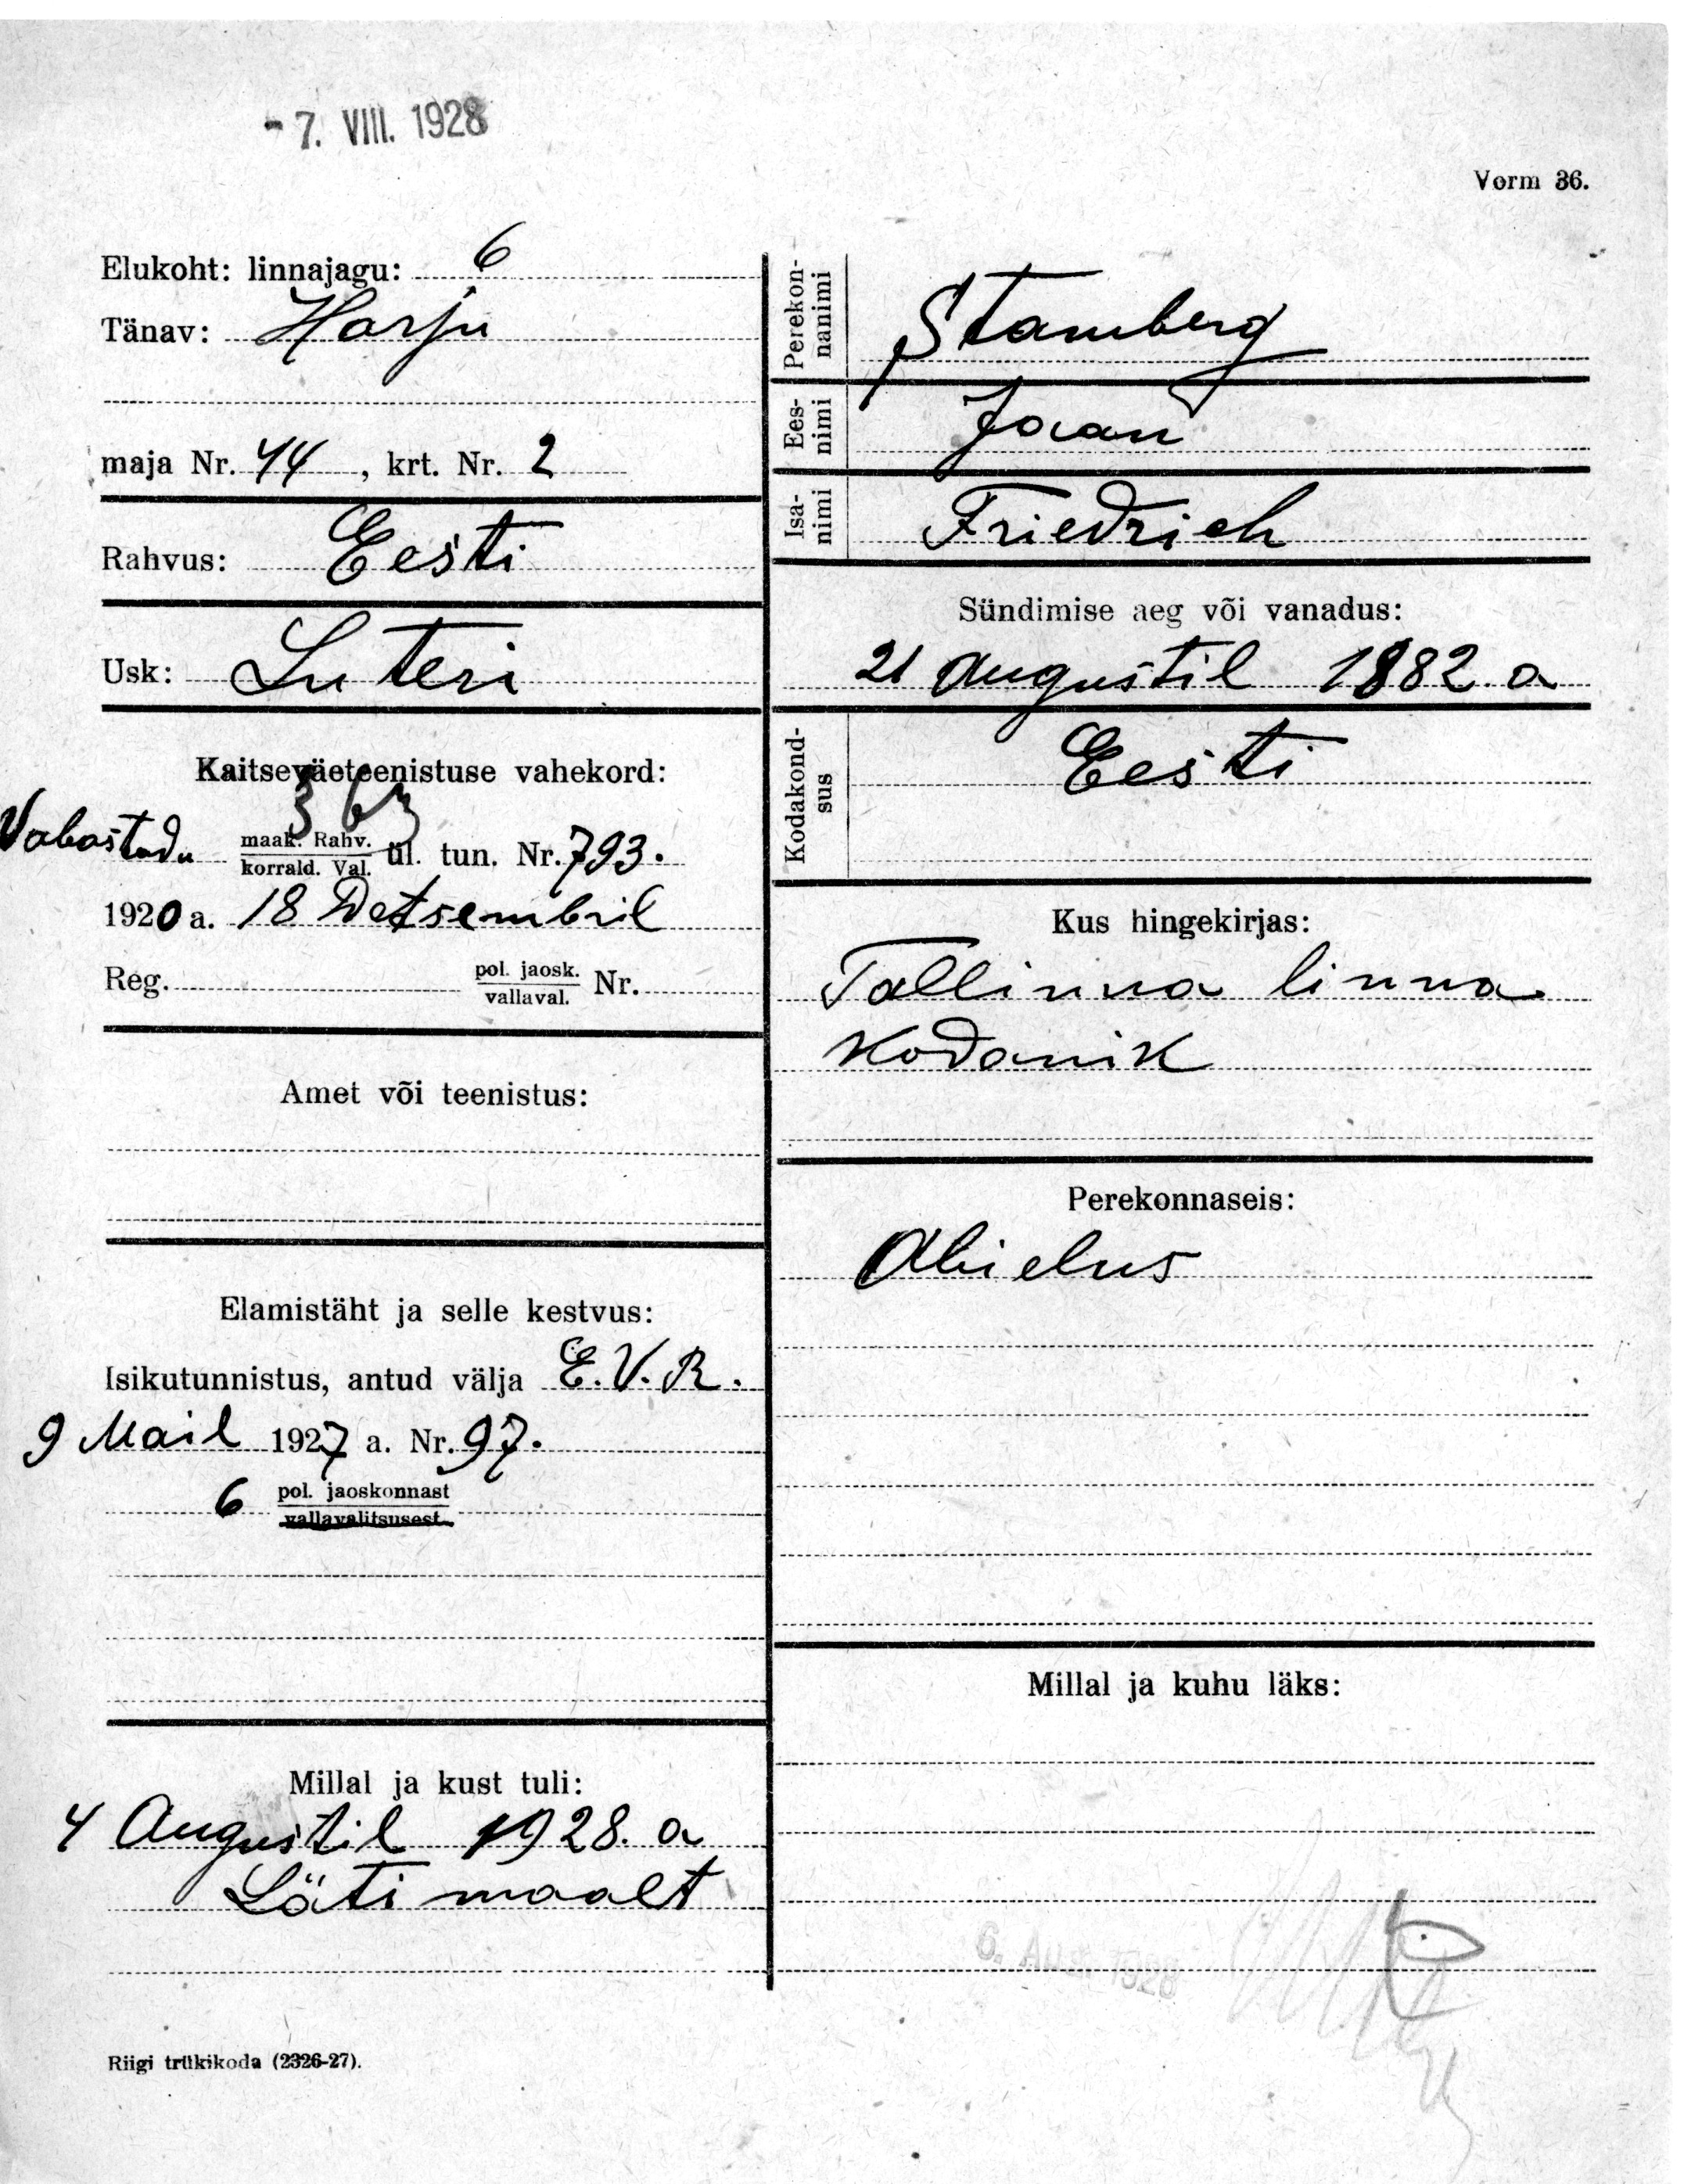 - 7. VIII. 1928
Vorm 36.
Elukoht: linnajagu: 6
Tänav: Harju
maja Nr. 44, krt. Nr. 2
Rahvus: Eesti
Usk: Luteri
Kaitseväeteenistuse vahekord:
Vabastadu maak. Rahv. ül. tun. Nr. 793.
korrald. Val.
1920 a. 18 Detsembril
Reg. pol. jaosk. Nr.
vallaval.
Amet või teenistus:
Elamistäht ja selle kestvus:
Isikutunnistus, antud välja E.V.R.
9 Mail 1927 a. Nr. 97.
6 pol. jaoskonnast
vallavalitsusest
Millal ja kust tuli:
4 Augustil 1928. a
Läti maalt
Riigi trükikoda (2326-27).
Perekon-
nanimi
Stamberg
Ees-
nimi
Joan
Isa-
nimi
Friedrich
Sündimise aeg või vanadus:
21 Augustil 1882. a
Kodakond-
sus
Eesti
Kus hingekirjas:
Tallinna linna
Kodanik
Perekonnaseis:
Abielus
Millal ja kuhu läks:
6. AUG. 1928